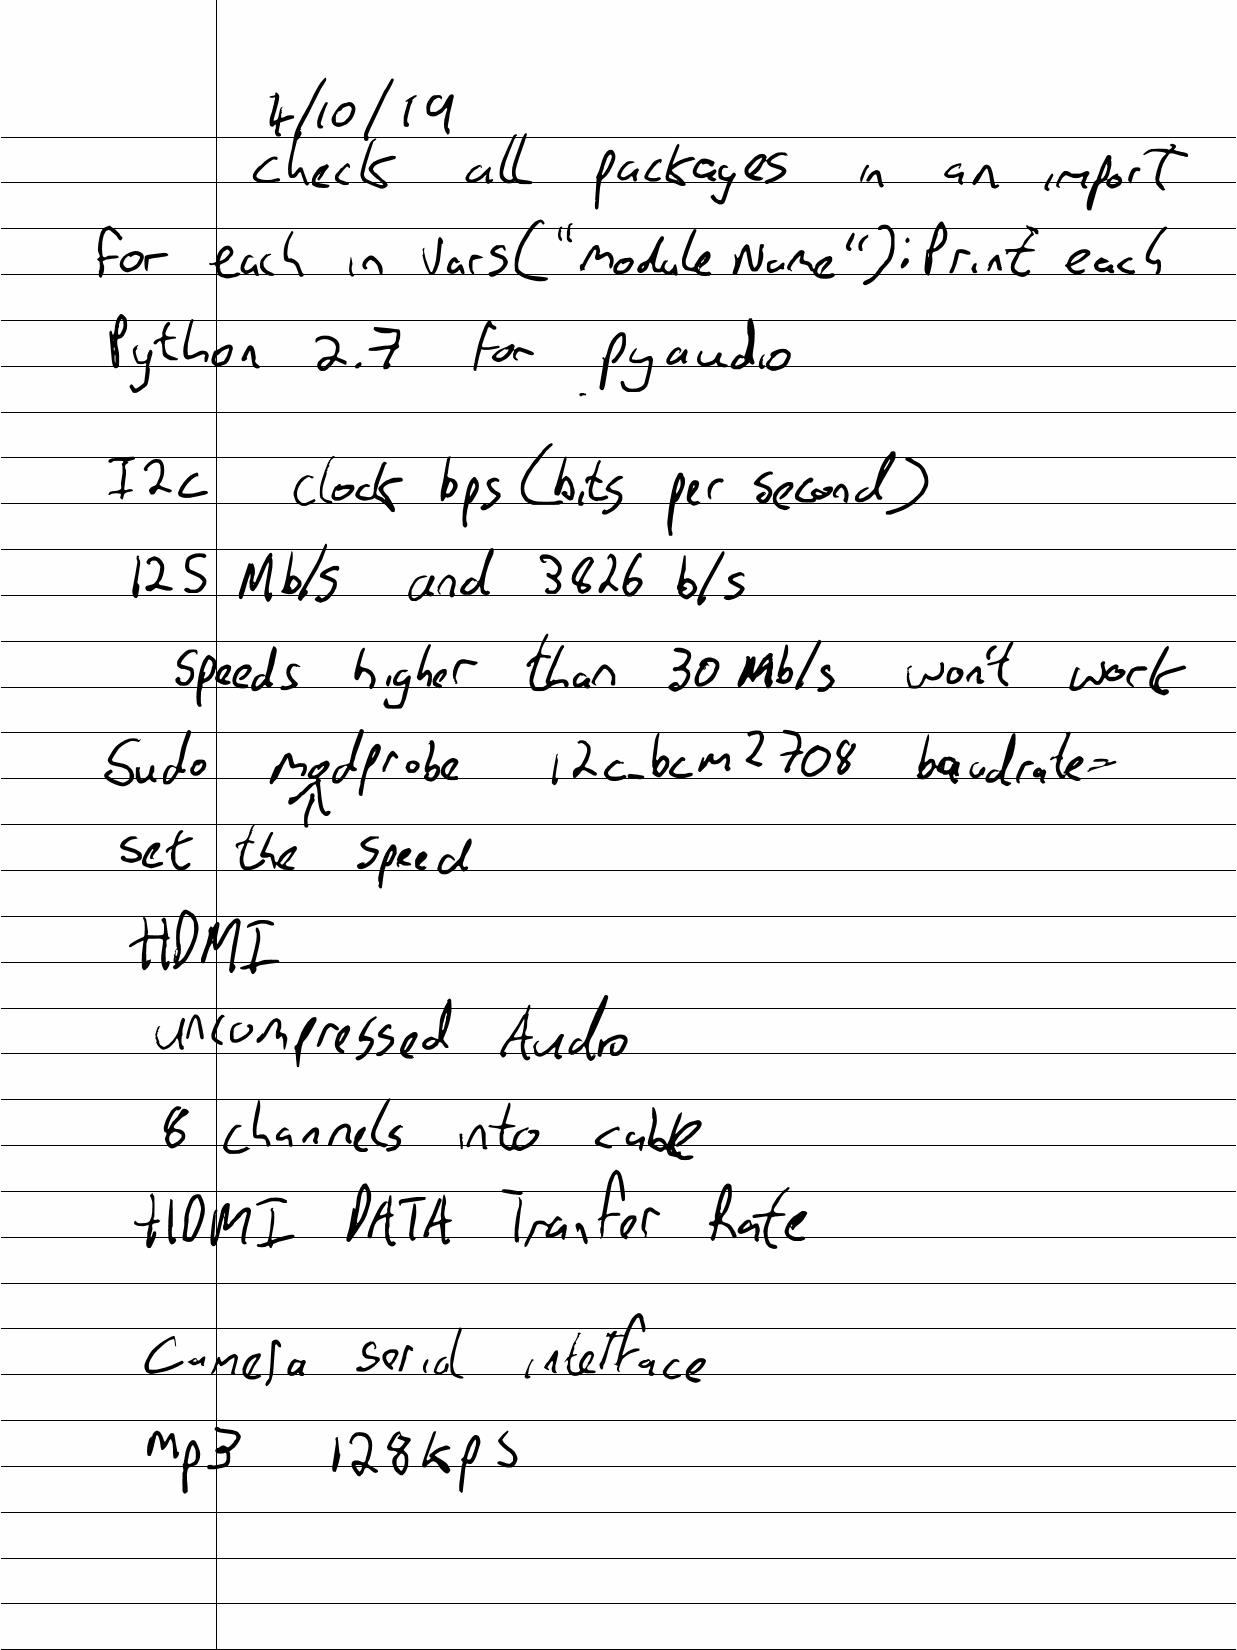 4/10/19
check all packages in an import
for each in vars("moduleName"):Print each
Python 2.7 for pyaudio
I2c clock bps (bits per second)
125 Mb/s and 3826 b/s
speeds higher than 30 Mb/s won't work
Sudo modprobe i2c_bcm2708 baudrate=
set the speed
HDMI
uncompressed Audio
8 channels into cable
HDMI DATA Tranfer Rate
Camera serial interface
mp3 128kps